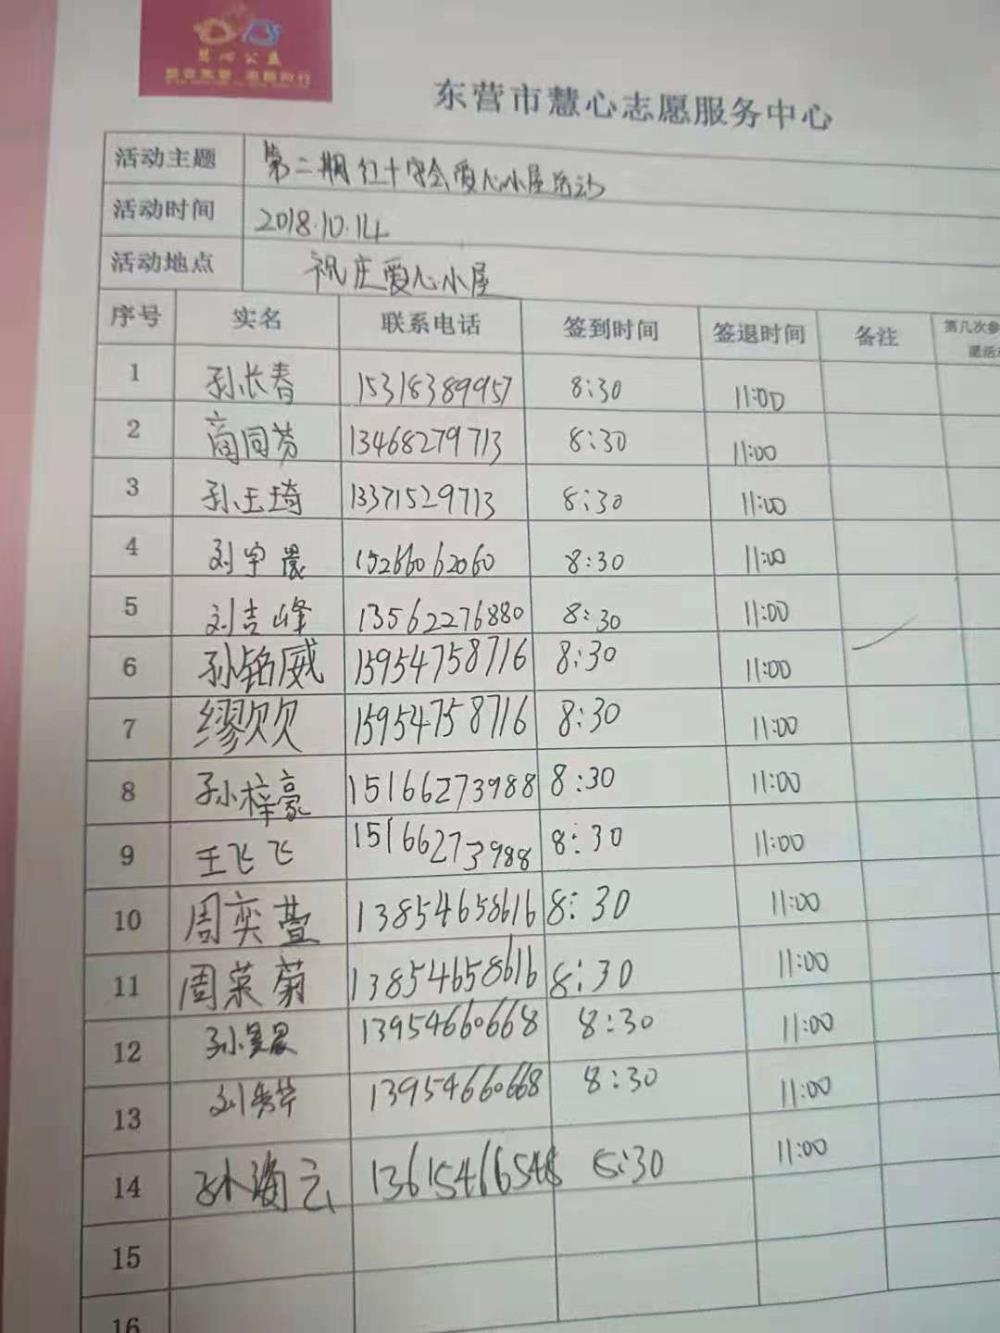 慧心公益
东营市慧心志愿服务中心
活动主题 第二期红十字会爱心小屋活动
活动时间 2018.10.14
活动地点 祝庄爱心小屋
序号 实名 联系电话 签到时间 签退时间 备注 第几次参
1 孙长春 15318389957 8:30 11:00
2 商同芬 13468279713 8:30 11:00
3 孙玉琦 13371529713 8:30 11:00
4 刘宇晨 15266062060 8:30 11:00
5 刘吉峰 13562276880 8:30 11:00
6 孙铭威 15954758716 8:30 11:00
7 缪欠欠 15954758716 8:30 11:00
8 孙梓豪 15166273988 8:30 11:00
9 王飞飞 15166273988 8:30 11:00
10 周奕萱 13854658616 8:30 11:00
11 周菜菊 13854658616 8:30 11:00
12 孙昊晨 13954660668 8:30 11:00
13 刘秀华 13954660668 8:30 11:00
14 孙海云 13615466548 8:30 11:00
15
16